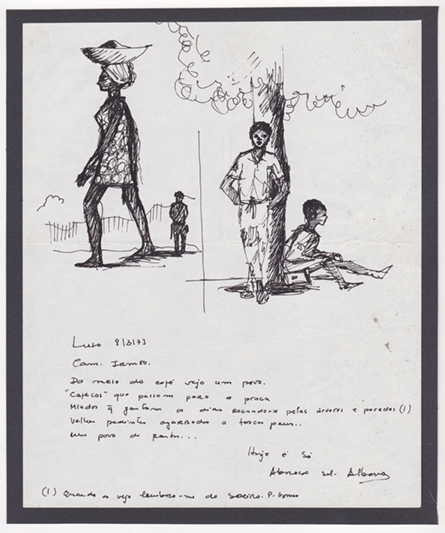 Luso 8/3/73
Cam. Irmão.
Do meio do café vejo um povo.
"Cafecos" que passam para a praça
Miudos q̃ gastam os dias roçando-x pelas árvores e paredes (1)
Velhos pedintes agarrados a toscos paus..
Um povo de rastos...
Hoje é Só
Abraço
(1) Quando os vejo lembro-me do Soeiro. P. Gomes